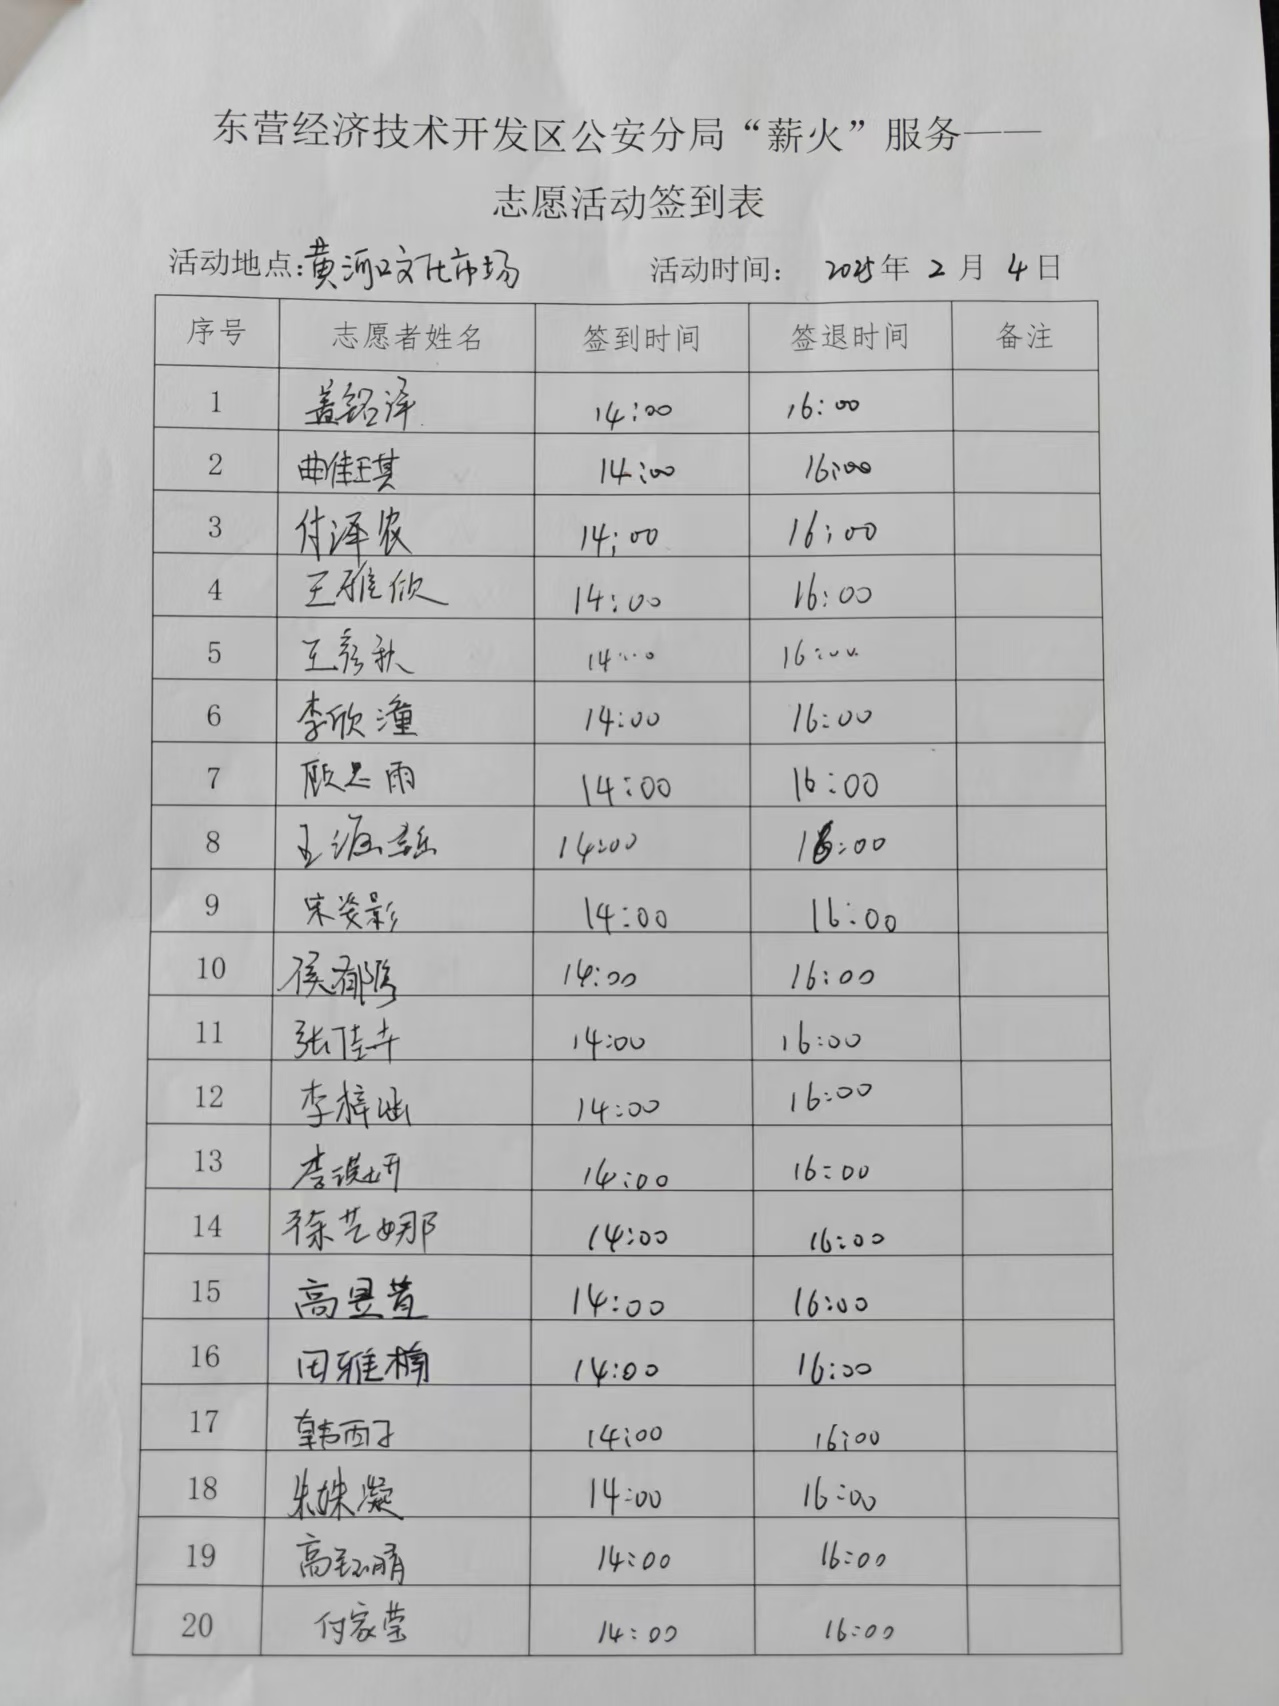 东营经济技术开发区公安分局“薪火”服务——
志愿活动签到表
活动地点:黄河口文化市场 活动时间: 2025年 2 月 4日
序号 志愿者姓名 签到时间 签退时间 备注
1 盖铭泽 14:00 16:00
2 曲佳琪 14:00 16:00
3 付泽农 14:00 16:00
4 王雅欣 14:00 16:00
5 王彦秋 14:00 16:00
6 李欣潼 14:00 16:00
7 顾思雨 14:00 16:00
8 王 14:00 16:00
9 宋姿影 14:00 16:00
10 侯 14:00 16:00
11 张佳卉 14:00 16:00
12 李梓涵 14:00 16:00
13 李 妍 14:00 16:00
14 徐艺娜 14:00 16:00
15 高昱萱 14:00 16:00
16 田雅楠 14:00 16:00
17 韩西子 14:00 16:00
18 朱姝凝 14:00 16:00
19 高钰晴 14:00 16:00
20 付家莹 14:00 16:00